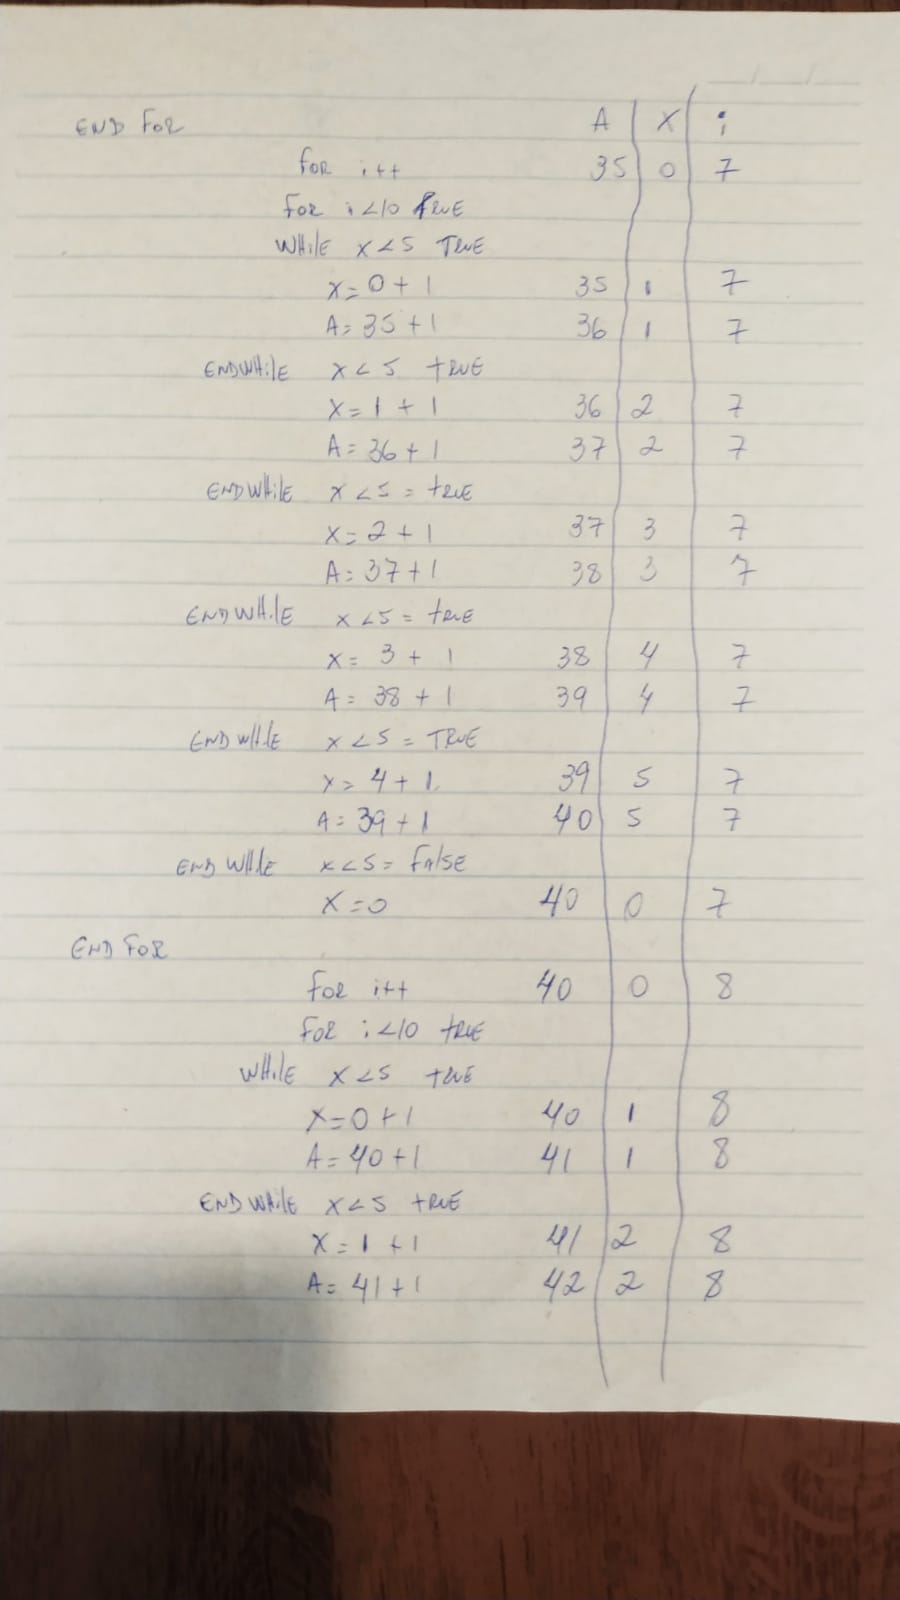 A X i
END FOR
FOR i++ 35 0 7
FOR i<10 TRUE
WHILE X<5 TRUE
X=0+1 35 1 7
A=35+1 36 1 7
ENDWHILE X<5 TRUE
X=1+1 36 2 7
A=36+1 37 2 7
ENDWHILE X<5=TRUE
X=2+1 37 3 7
A=37+1 38 3 7
ENDWHILE X<5=TRUE
X=3+1 38 4 7
A=38+1 39 4 7
ENDWHILE X<5=TRUE
X=4+1 39 5 7
A=39+1 40 5 7
END WHILE X<5=FALSE
X=0 40 0 7
END FOR
FOR i++ 40 0 8
FOR i<10 TRUE
WHILE X<5 TRUE
X=0+1 40 1 8
A=40+1 41 1 8
END WHILE X<5 TRUE
X=1+1 41 2 8
A=41+1 42 2 8